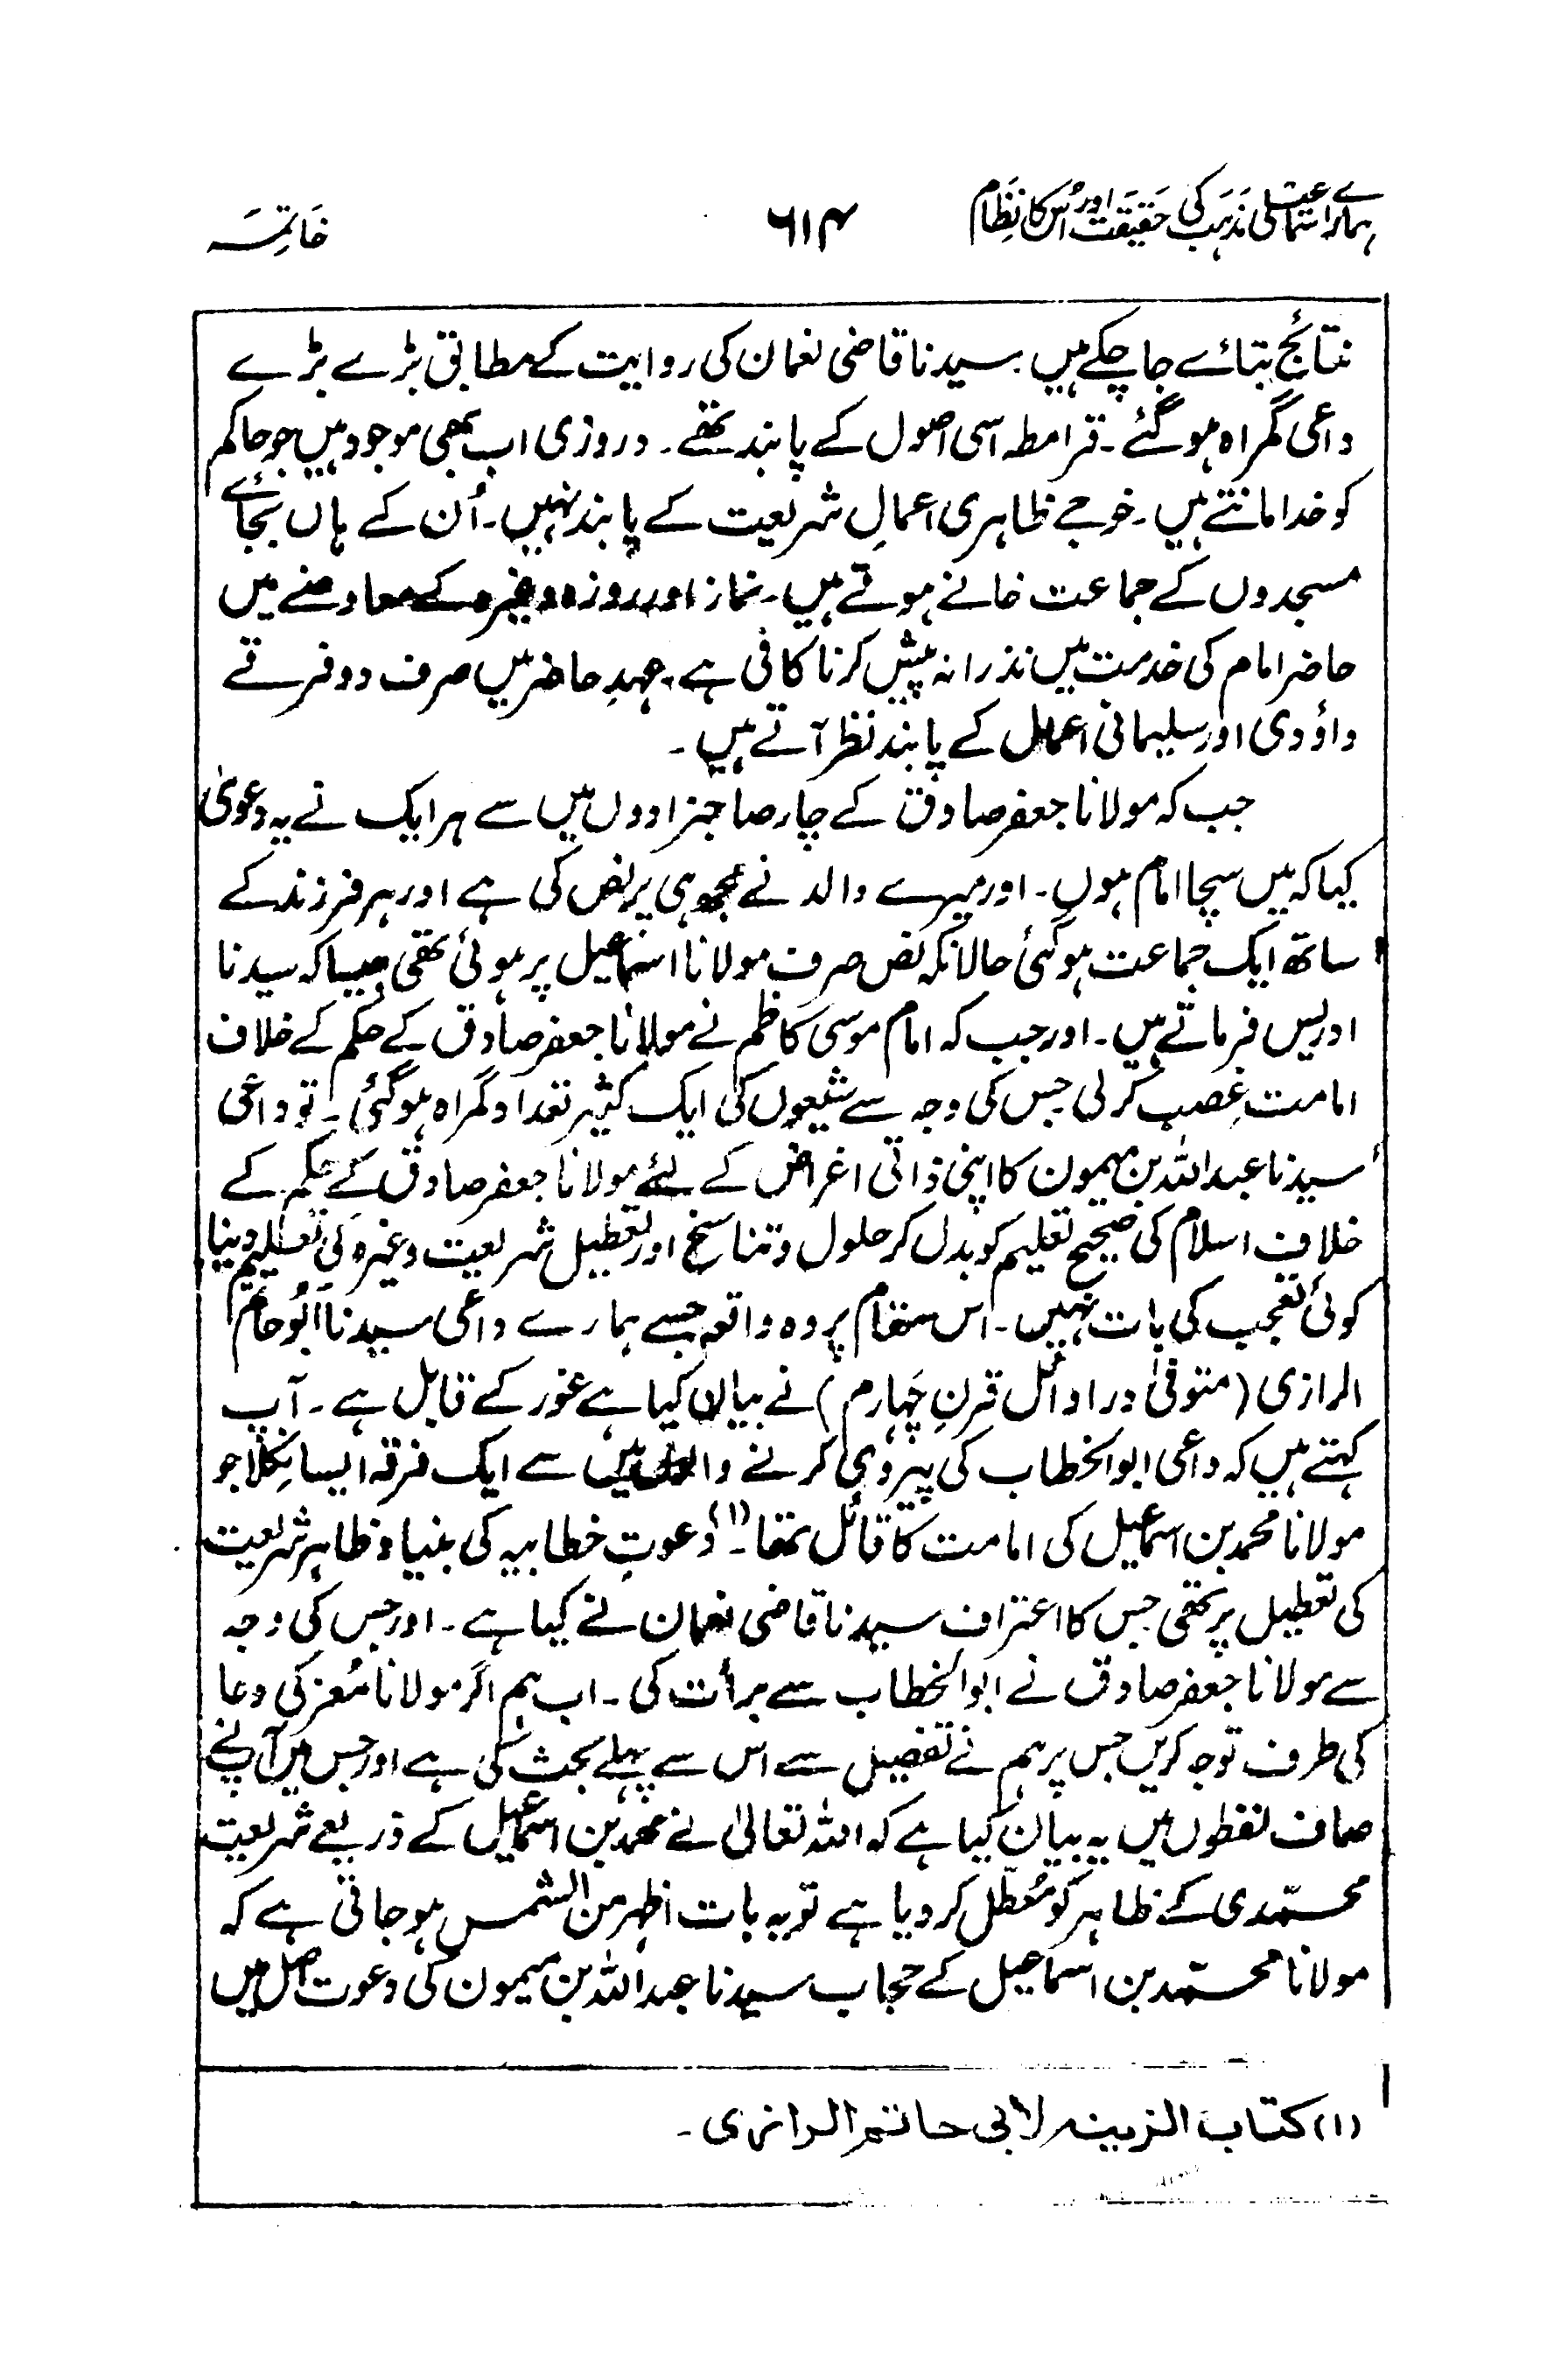 ہمارے اسماعیلی مذہب کی حقیقت اور اُس کا نظام
۶۱۴
خاتمہ
نتائج بتائے جا چکے ہیں۔ سیدنا قاضی نعمان کی روایت کے مطابق بڑے بڑے
داعی گمراہ ہو گئے۔ قرامطہ اسی اصول کے پابند تھے۔ دروزی اب بھی موجود ہیں جو حاکم
کو خدا مانتے ہیں۔ خوجے ظاہری اعمالِ شریعت کے پابند نہیں۔ اُن کے ہاں بجائے
مسجدوں کے جماعت خانے ہوتے ہیں۔ نماز اور روزہ وغیرہ کے معاوضے میں
حاضر امام کی خدمت میں نذرانہ پیش کرنا کافی ہے۔ عہدِ حاضر میں صرف دو فرقے
داؤدی اور سلیمانی اعمال کے پابند نظر آتے ہیں۔
جب کہ مولانا جعفر صادق کے چار صاحبزادوں میں سے ہر ایک نے یہ دعویٰ
کیا کہ میں سچا امام ہوں۔ اور میرے والد نے مجھ ہی پر نص کی ہے اور ہر فرزند کے
ساتھ ایک جماعت ہو گئی حالانکہ نص صرف مولانا اسماعیل پر ہوئی تھی جیسا کہ سیدنا
ادریس فرماتے ہیں۔ اور جب کہ امام موسی کاظم نے مولانا جعفر صادق کے حکم کے خلاف
امامت غصب کر لی جس کی وجہ سے شیعوں کی ایک کثیر تعداد گمراہ ہو گئی۔ تو داعی
سیدنا عبداللہ بن میمون کا اپنی ذاتی اغراض کے لئے مولانا جعفر صادق کے حکم کے
خلاف اسلام کی صحیح تعلیم کو بدل کر حلول و تناسخ اور تعطیل شریعت وغیرہ کی تعلیم دینا
کوئی تعجب کی بات نہیں۔ اس مقام پر وہ واقعہ جسے ہمارے داعی سیدنا ابوحاتم
الرازی (متوفیٰ در اوائل قرنِ چہارم) نے بیان کیا ہے غور کے قابل ہے۔ آپ
کہتے ہیں کہ داعی ابوالخطاب کی پیروی کرنے والوں میں سے ایک فرقہ ایسا نکلا جو
مولانا محمد بن اسماعیل کی امامت کا قائل تھا۔(۱) دعوتِ خطابیہ کی بنیاد ظاہر شریعت
کی تعطیل پر تھی جس کا اعتراف سیدنا قاضی نعمان نے کیا ہے۔ اور جس کی وجہ
سے مولانا جعفر صادق نے ابوالخطاب سے برأت کی۔ اب ہم اگر مولانا مُعز کی دعا
کی طرف توجہ کریں جس پر ہم نے تفصیل سے اس سے پہلے بحث کی ہے اور جس میں آپ نے
صاف لفظوں میں یہ بیان کیا ہے کہ اللہ تعالیٰ نے محمد بن اسماعیل کے ذریعے شریعت
محمّدی کے ظاہر کو مُعطّل کر دیا ہے تو یہ بات اظہر من الشمس ہو جاتی ہے کہ
مولانا محمّد بن اسماعیل کے حجاب سیدنا عبداللہ بن میمون کی دعوت اصل میں
(۱) کتاب الزینہ لابی حاتم الرازی۔